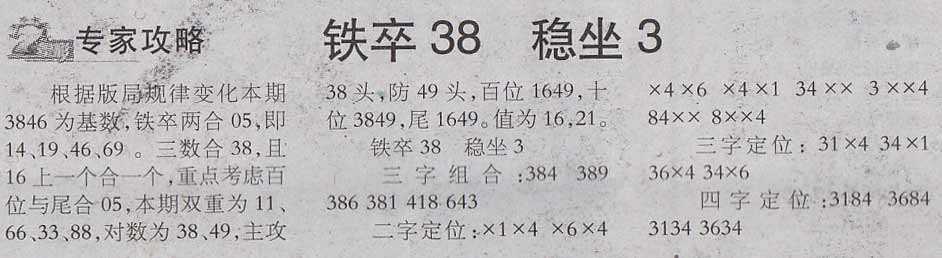 专家攻略
铁卒38 稳坐3
根据版局规律变化本期
3846为基数,铁卒两合05,即
14、19、46、69 。三数合38,且
16上一个合一个,重点考虑百
位与尾合05,本期双重为11、
66、33、88,对数为38、49,主攻
38头,防49头,百位1649,十
位3849,尾1649。值为16,21。
铁卒38 稳坐3
三字组合:384 389
386 381 418 643
二字定位:×1×4 ×6×4
×4×6 ×4×1 34×× 3××4
84×× 8××4
三字定位: 31×4 34×1
36×4 34×6
四字定位:3184 3684
3134 3634